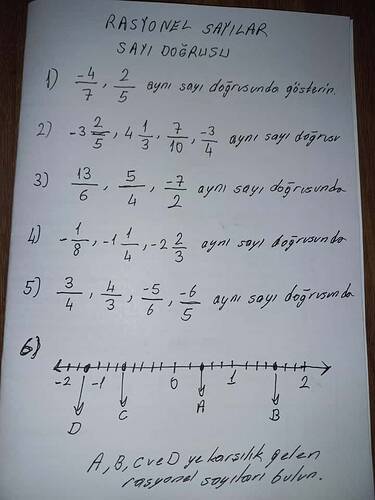 RASYONEL SAYILAR
SAYI DOĞRUSU
1) -4/7, 2/5 aynı sayı doğrusunda gösterin.
2) -3 2/5, 4 1/3, 7/10, -3/4 aynı sayı doğrusu
3) 13/6, 5/4, -7/2 aynı sayı doğrusunda
4) -1/8, -1 1/4, -2 2/3 aynı sayı doğrusunda
5) 3/4, 4/3, -5/6, -6/5 aynı sayı doğrusunda
6)
-2 -1 0 1 2
D C A B
A, B, C ve D ye karşılık gelen
rasyonel sayıları bulun.